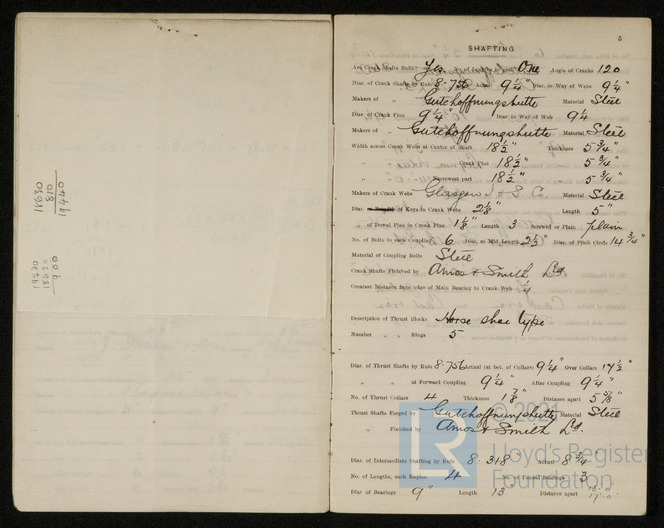 18630
810
19440
19530
18630
900
5
SHAFTING
Are Crank Shafts Built? Yes. No. of Lengths One Angle of Cranks 120
Diar. of Crank Shafts by Rule 8.756 Actual 9 1/4" Diar. in Way of Webs 9 1/4"
Makers of " " Gutehoffnungshutte Material Steel
Diar. of Crank Pins 9 1/4 Diar. in Way of Web 9 1/4
Makers of " Gutehoffnungshutte Material Steel
Width across Crank Webs at Centre of Shaft 18 1/2" Thickness 5 3/4"
" " Crank Pins 18 1/2" " 5 3/4"
" " Narrowest part 18 1/2" " 5 3/4"
Makers of Crank Webs Glasgow I & S. Co. Material Steel
Diar. of Keys in Crank Webs 2 1/8" Length 5"
" of Dowel Pins in Crank Pins 1 1/8" Length 3 Screwed or Plain plain
No. of Bolts in each Coupling 6 Diar. at Mid Length 2 1/2" Diar. of Pitch Circle 14 3/4"
Material of Coupling Bolts Steel
Crank Shafts Finished by Amos & Smith Ltd.
Greatest Distance from edge of Main Bearing to Crank Web 1/4"
Description of Thrust Blocks Horse shoe type
Number " " Rings 5
Diar. of Thrust Shafts by Rule 8.756 Actual (at bot. of Collars) 9 1/4" Over Collars 17 1/2"
" " at Forward Coupling 9 1/4" After Coupling 9 1/4"
No. of Thrust Collars 4 Thickness 1 7/8" Distance apart
Thrust Shafts Forged by Gutehoffnungshutte Material Steel
" Finished by Amos & Smith Ltd.
Diar. of Intermediate Shafting by Rule 8.348" Actual 8 3/4"
No. of Lengths, each Engine 4 No. of Tunnel Bearings 3
Diar of Bearings 9" Length 13" Distance apart
© 2021
LR
Lloyd's Register
Foundation